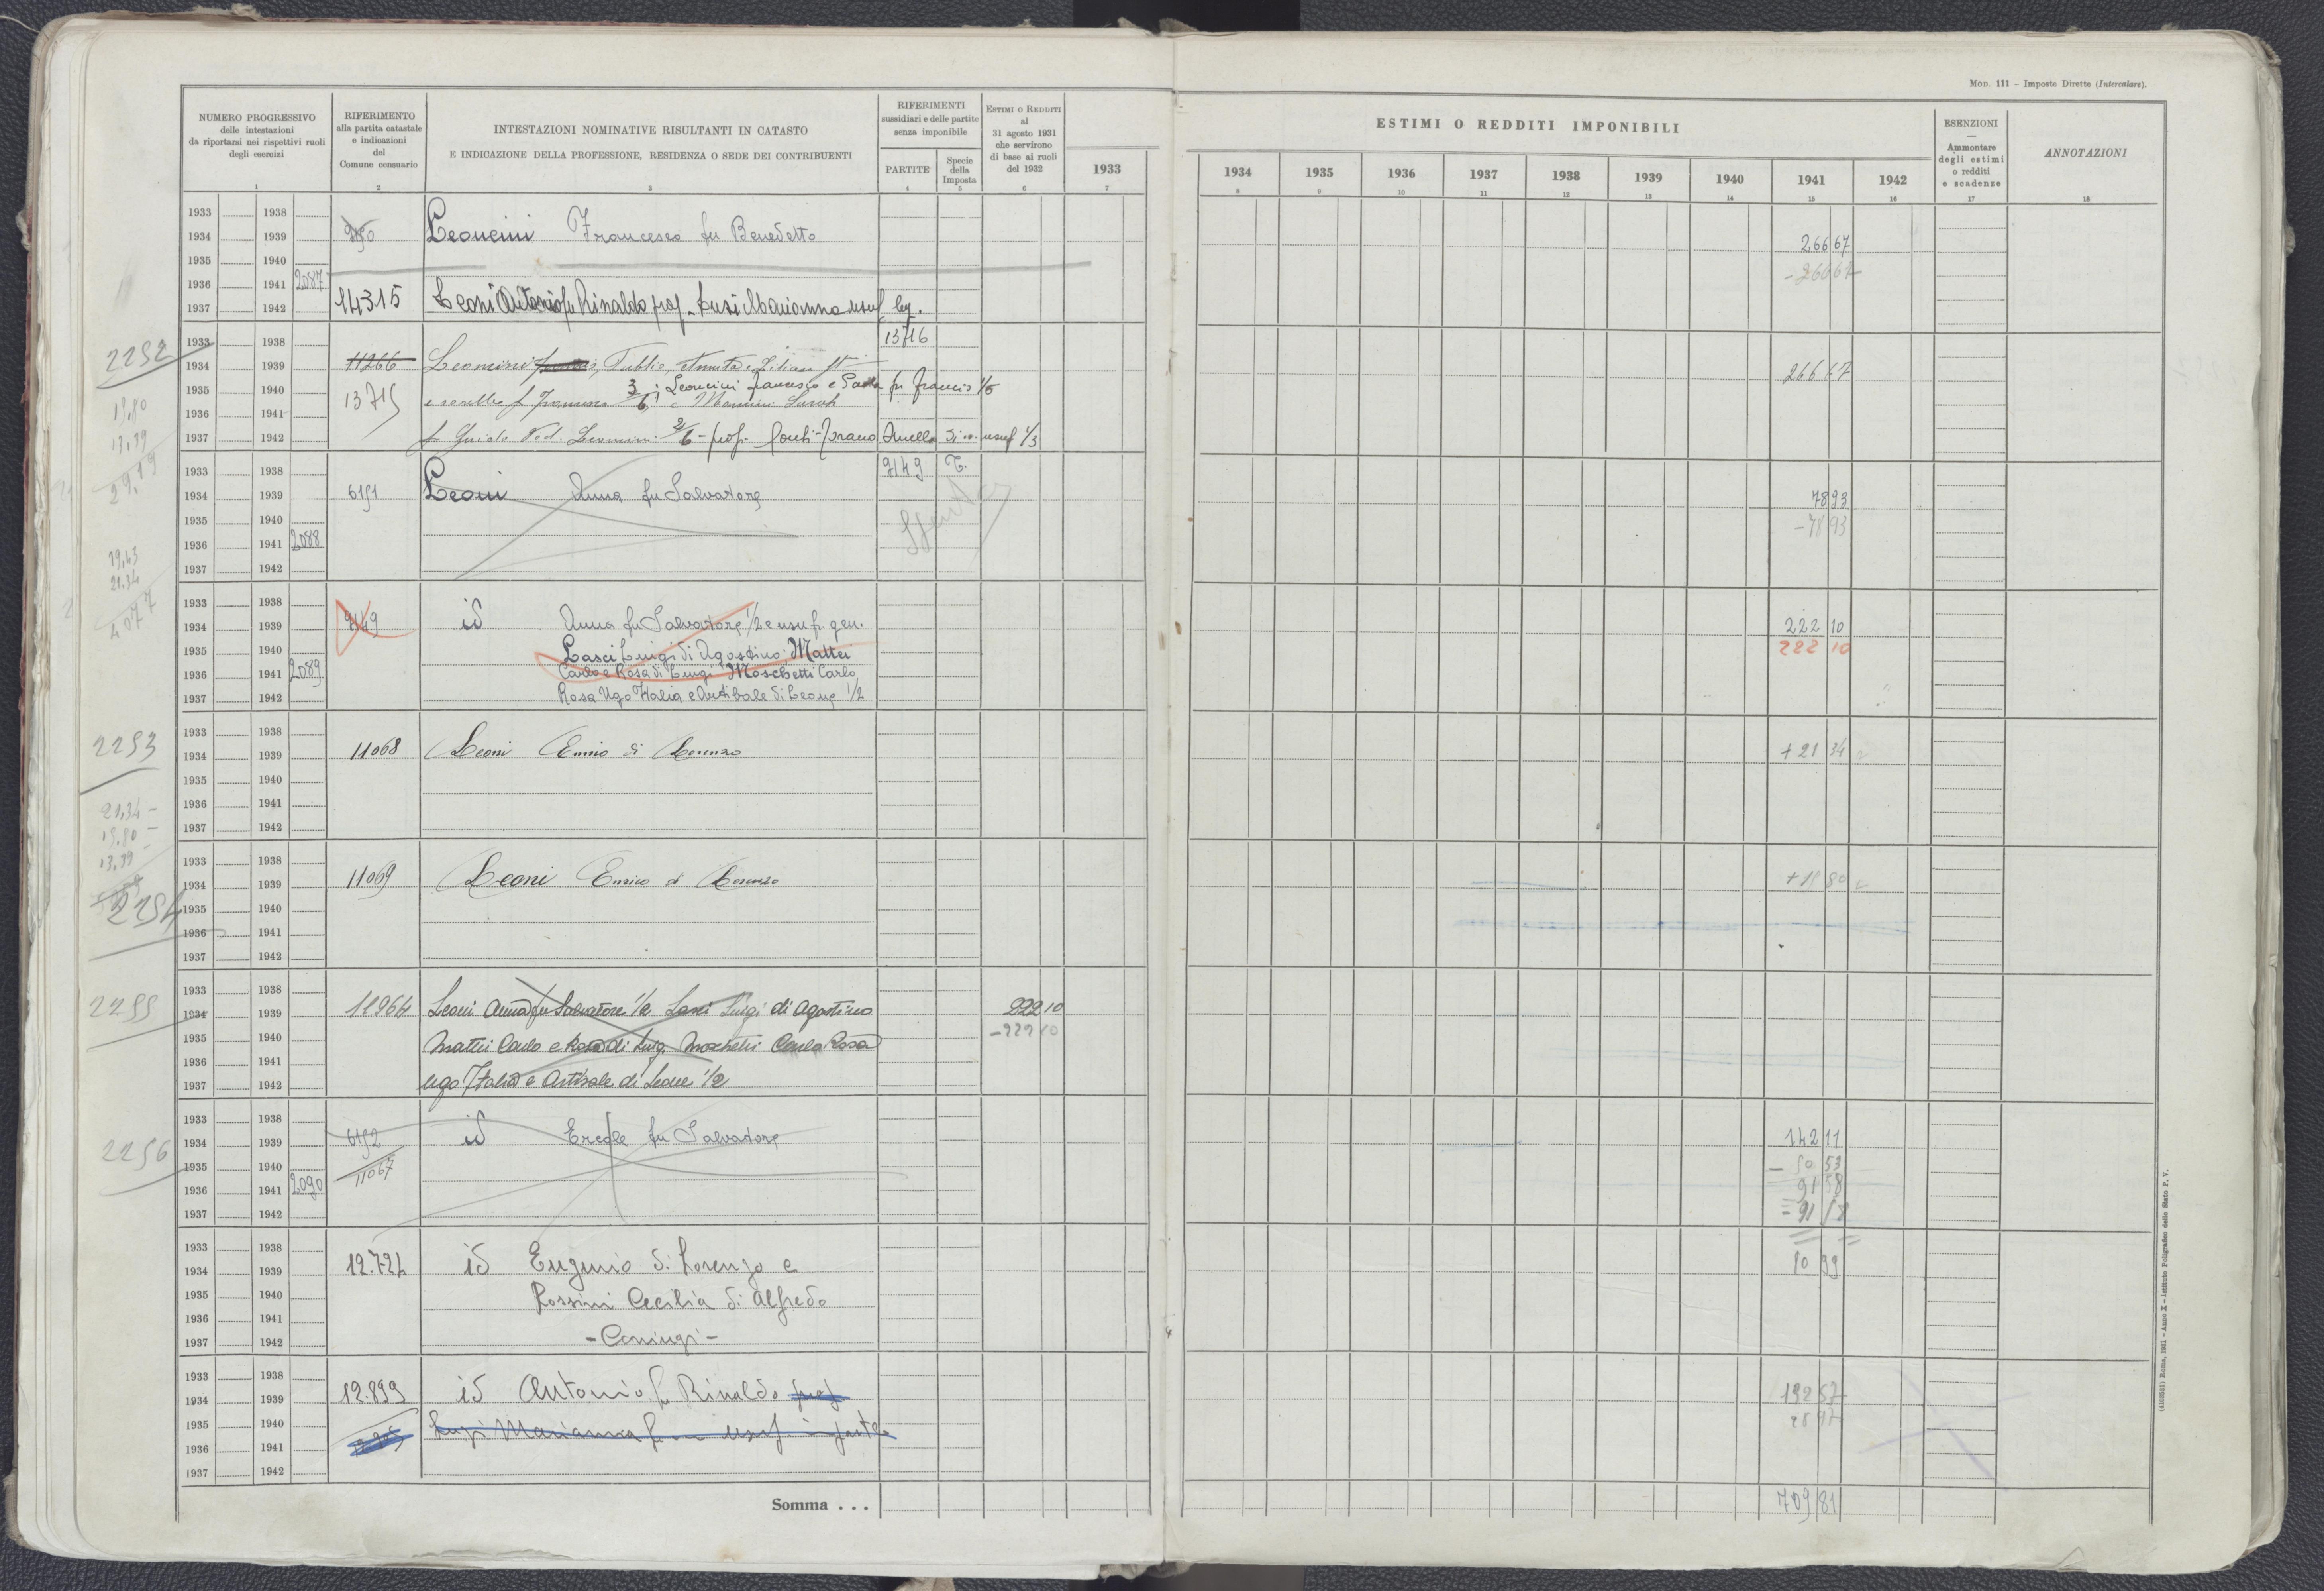 Mod. 111 – Imposte Dirette (Intercalare).
NUMERO PROGRESSIVO
delle intestazioni
da riportarsi nei rispettivi ruoli
degli esercizi
1
RIFERIMENTO
alla partita catastale
e indicazioni
del
Comune censuario
2
INTESTAZIONI NOMINATIVE RISULTANTI IN CATASTO
E INDICAZIONE DELLA PROFESSIONE, RESIDENZA O SEDE DEI CONTRIBUENTI
3
RIFERIMENTI
sussidiari e delle partite
senza imponibile
PARTITE
4
Specie
della
Imposta
5
Estimi o Redditi
al
31 agosto 1931
che servirono
di base ai ruoli
del 1932
6
ESTIMI O REDDITI IMPONIBILI
1933 1934 1935 1936 1937 1938 1939 1940 1941 1942
7 8 9 10 11 12 13 14 15 16
ESENZIONI
—
Ammontare
degli estimi
o redditi
e scadenze
17
ANNOTAZIONI
18
1933 1938
1934 1939 Leoncini Francesco fu Benedetto 266 67
1935 1940 - 266 67
1936 1941 2087
1937 1942 14315 Leoni Antonio fu Rinaldo prop. Lusi Marianna usuf leg.
2252
1933 1938 13716
1934 1939 11266 Leoncini Tullio, Annita e Liliana 266 67
1935 1940 13715 e sorelle f Francesco 3/6; Leoncini Francesco e Paola fu Francis 1/6
1936 1941 e Mancini Sarah
1937 1942 f Guido Ved. Leoncini 2/6 - prop. Conti-Forano Quella di usuf 1/3
19,80
13,39
1933 1938 9149 T.
1934 1939 6151 Leoni Anna fu Salvatore 78 93
1935 1940 - 78 93
1936 1941 2088
1937 1942
19,43
21.34
407 7
1933 1938
1934 1939 9149 id Anna fu Salvatore 1/2 e usufr. gen. 222 10
1935 1940 Lasci Luigi di Agostino; Mattei 222 10
1936 1941 2089 Carlo e Rosa di Luigi Moschetti Carlo,
1937 1942 Rosa Ugo Italia e Anibale di Leone 1/2
2253
1933 1938
1934 1939 11068 Leoni Ennio di Lorenzo + 21 34
1935 1940
1936 1941
1937 1942
21,34 -
19.80 -
13.39 -
2254
1933 1938
1934 1939 11069 Leoni Enrico di Lorenzo + 19 80
1935 1940
1936 1941
1937 1942
2255
1933 1938
1934 1939 12964 Leoni Anna fu Salvatore 1/2 Lasci Luigi di Agostino 222 10
1935 1940 Mattei Carlo e Rosa di Luigi Moschetti Carlo Rosa - 222 10
1936 1941
1937 1942 Ugo Italia e Anibale di Leone 1/2
2256
1933 1938
1934 1939 6152 id Ercole fu Salvatore 142 11
1935 1940 11067 - 50 53
1936 1941 2090 91 58
1937 1942 - 91 58
1933 1938
1934 1939 12.724 id Eugenio di Lorenzo e 10 99
1935 1940 Rossini Cecilia di Alfredo
1936 1941
1937 1942 - Coniugi -
1933 1938
1934 1939 12.899 id Antonio fu Rinaldo prop 132 57
1935 1940 Lugi Marianna fu usuf in parte
1936 1941
1937 1942
Somma . . . 709 81
Roma, 1931 – Anno X – Istituto Poligrafico dello Stato P. V.